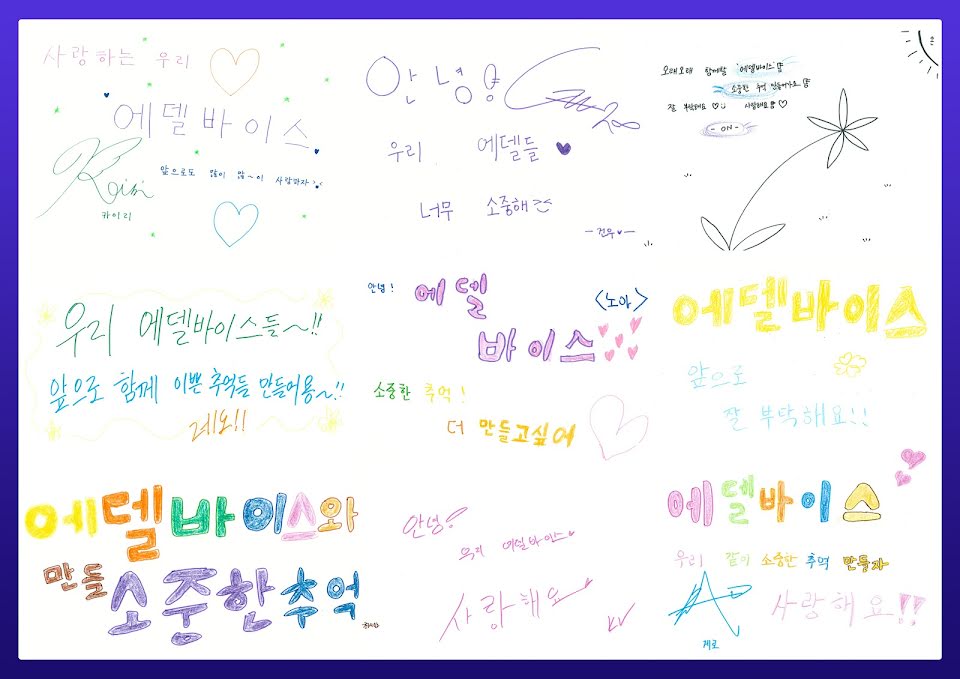 사랑하는 우리
에델바이스
앞으로도 많이 많~이 사랑하자
카이리
안녕
우리 에델들
너무 소중해
-건우-
오래오래 함께할 '에델바이스'
소중한 추억 만들어가요
잘 부탁해요 사랑해요
- ON -
우리 에델바이스들~!!
앞으로 함께 이쁜 추억들 만들어용~!!
제오!!
안녕!
에델
<노아>
바이스
소중한 추억!
더 만들고싶어
에델바이스
앞으로
잘 부탁해요!!
에델바이스와
만들
소중한추억
안녕?
우리 에델바이스
사랑해요
에델바이스
우리 같이 소중한 추억 만들자
사랑해요!!